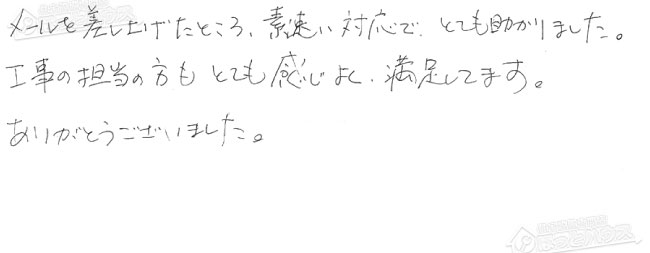 メールを差し上げたところ、素速い対応で、とても助かりました。
工事の担当の方も とても感じよく、満足してます。
ありがとうございました。